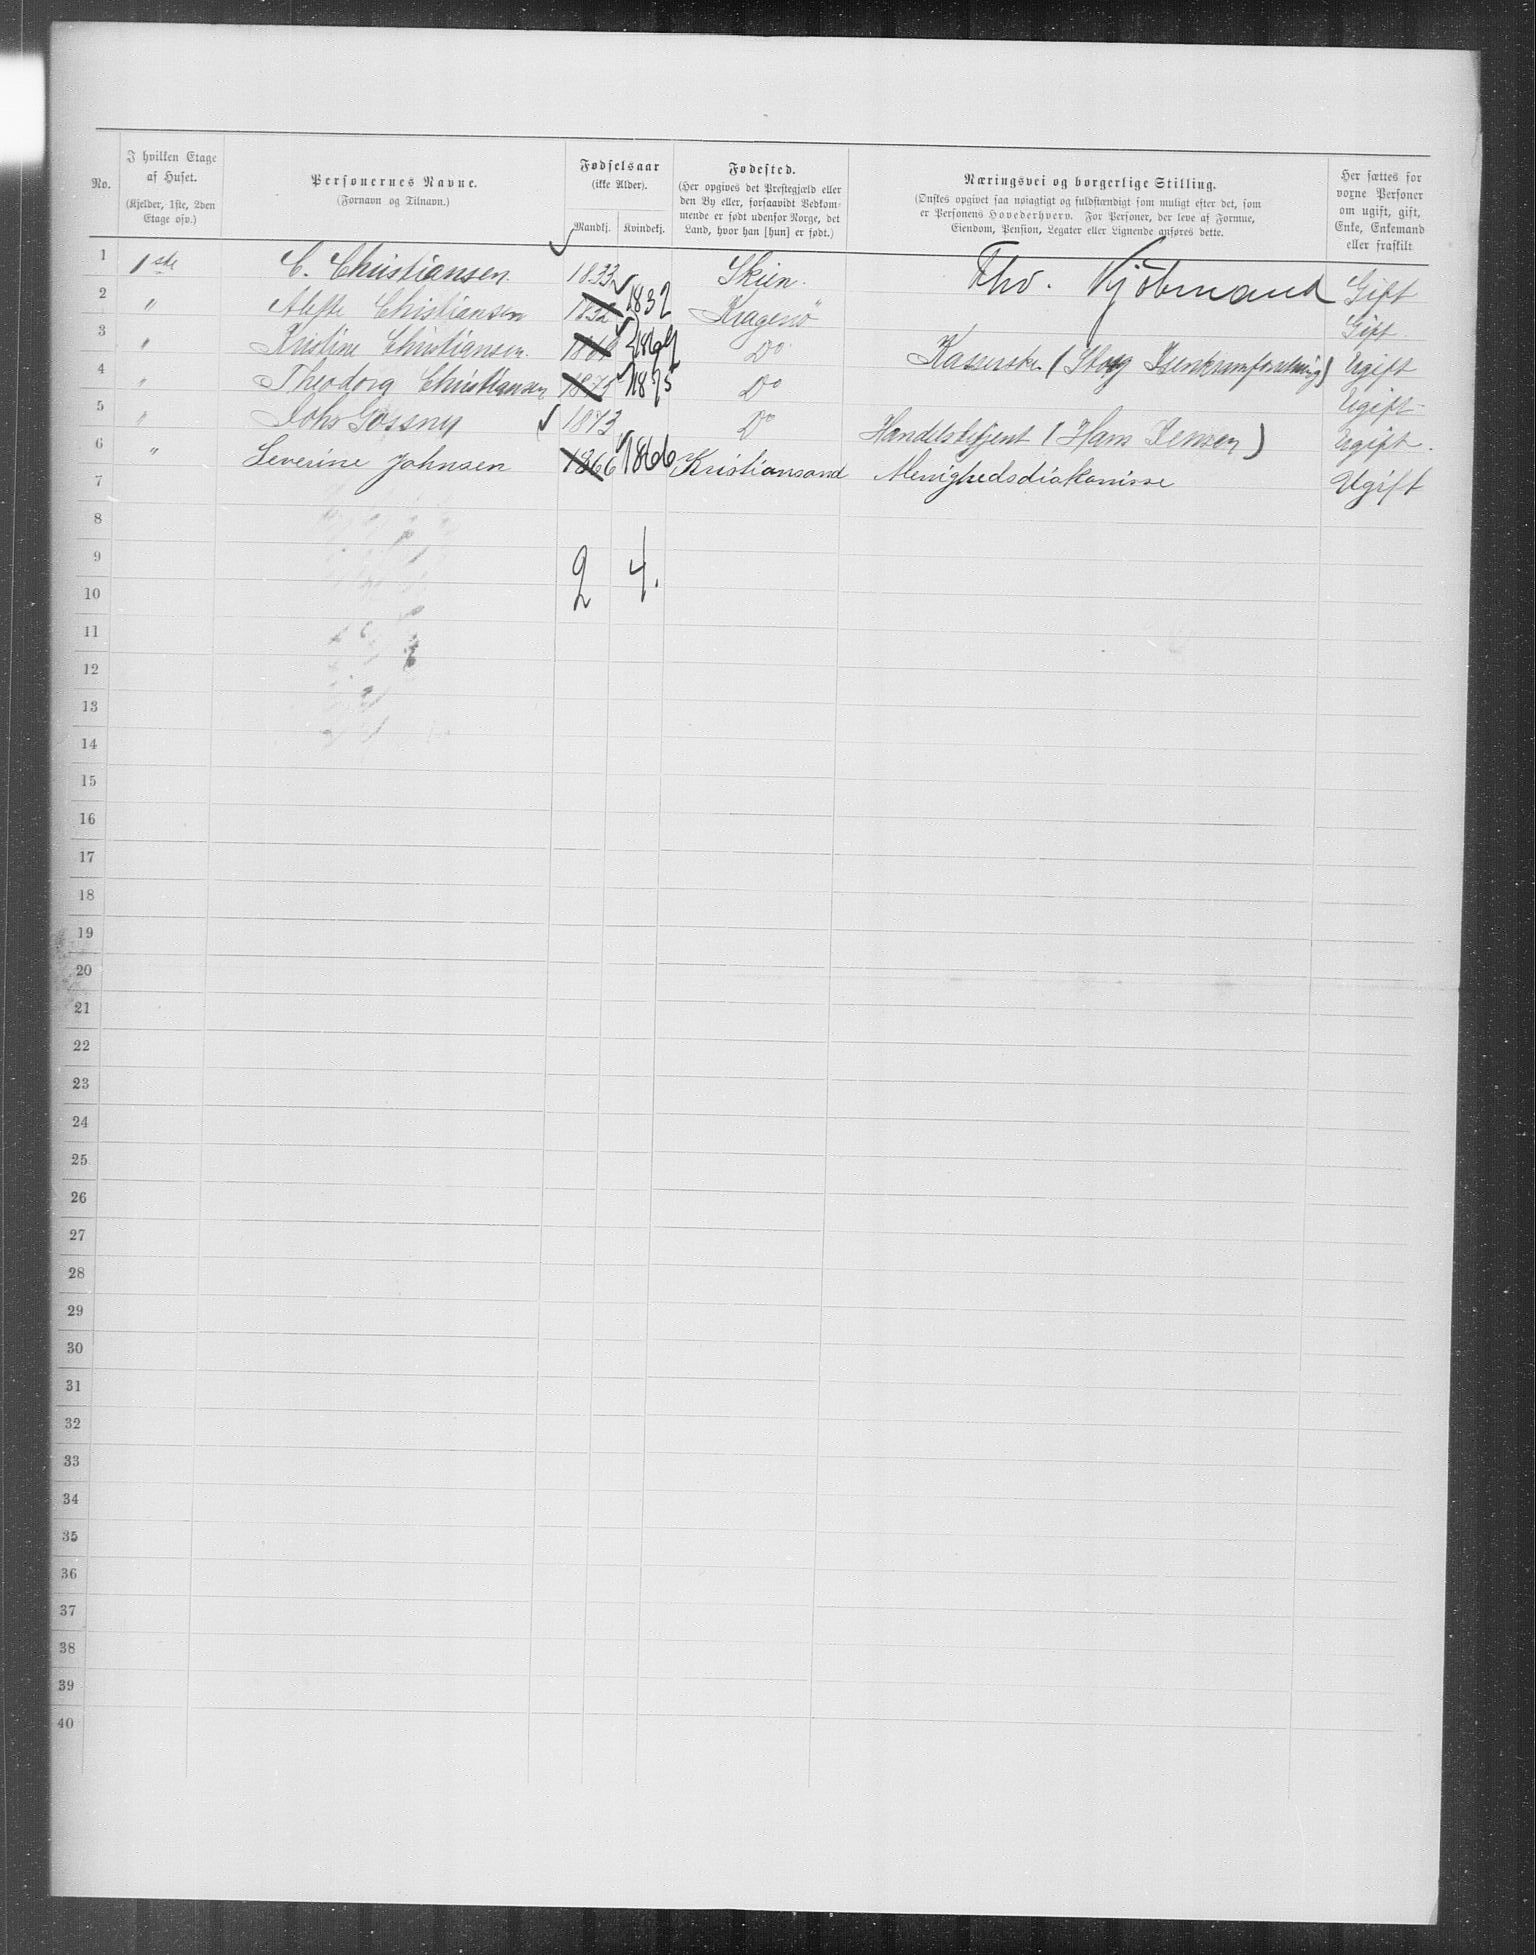 No.
I hvilken Etage af Huset.
(Kjelder, 1ste, 2den Etage osv.)
Personernes Navne.
(Fornavn og Tilnavn.)
Fødselsaar
(ikke Alder).
Mandkj. Kvindekj.
Fødested.
(Her opgives det Prestegjæld eller
den By eller, forsaavidt Vedkom-
mende er født udenfor Norge, det
Land, hvor han [hun] er født.)
Næringsvei og borgerlige Stilling.
(Ønskes opgivet saa nøiagtigt og fuldstændigt som muligt efter det, som
er Personens Hovederhverv. For Personer, der leve af Formue,
Eiendom, Pension, Legater eller Lignende anføres dette.
Her sættes for
voxne Personer
om ugift, gift,
Enke, Enkemand
eller fraskilt
1 1ste C. Christiansen. 1833 Skien. Fhv. Kjöbmand Gift
2 " Christiansen 1832 1832 Kragerö Gift.
3 " Kristine Christiansen. 1869 1869 Do Kasserske ( Isenkramforretning) Ugift
4 " Theodora Christiansen 1875 1875 Do Ugift
5 " Johs 1873 Do Handelsbetjent (Hans Jensen) Ugift.
6 " Severine Johnsen 1866 1866 Kristiansand Menighedsdiakonisse Ugift
7
8
9 2 4.
10
11
12
13
14
15
16
17
18
19
20
21
22
23
24
25
26
27
28
29
30
31
32
33
34
35
36
37
38
39
40